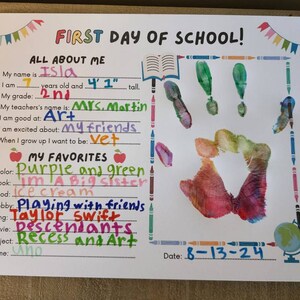 FIRST DAY OF SCHOOL!
ALL ABOUT ME
My name is Isla
I am 7 years old and 4'1" tall.
My grade: 2nd
My teachers's name is: Mrs. Martin
I am good at: Art
I am excited about: my friends
When I grow up I want to be: vet
MY FAVORITES
Color: Purple and green
Book: I'm a Big sister
Food: Ice cream
Hobby: Playing with friends
Song: Taylor Swift
Movie: Descendants
Subject: Recess and Art
uno
Date: 8-13-24